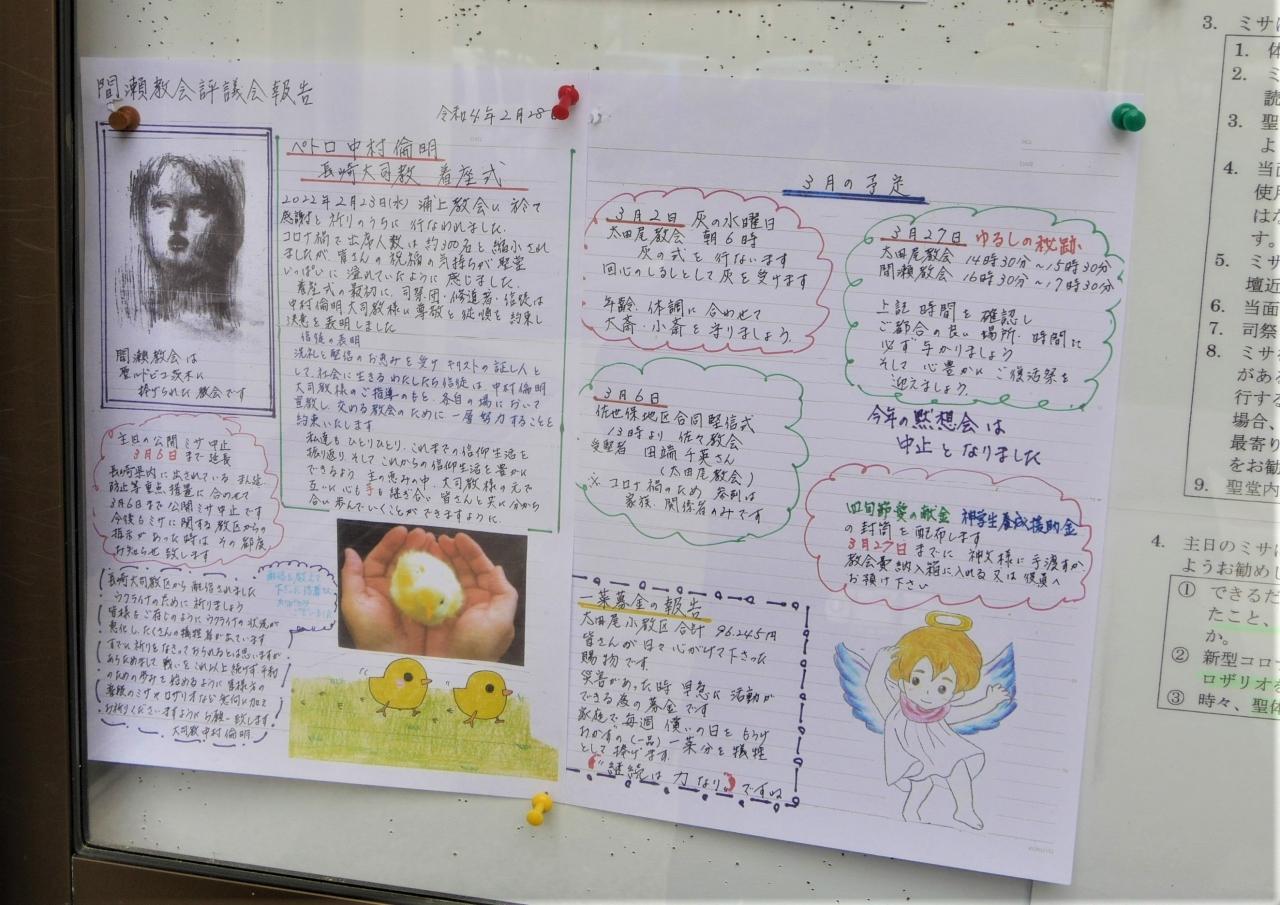 間瀬教会評議会報告
令和4年2月28日
間瀬教会は
捧げられた教会です
ペトロ中村倫明
長崎大司教 着座式
2022年2月23日(水)浦上教会に於て
感謝と祈りのうちに行なわれました。
コロナ禍で出席人数は約300名と縮小され
ましたが、皆さんの祝福の気持ちが聖堂
いっぱいに溢れていたように感じました。
着座式の最初に、司祭団・修道者・信徒は
中村倫明大司教様に尊敬と従順を約束し
決意を表明しました
信徒の表明
洗礼と堅信のお恵みを受け キリストの証し人と
して、社会に生きるわたしたち信徒は、中村倫明
大司教様のご指導のもと、各自の場において
宣教し、交わる教会のために一層努力することを
約束いたします
私達もひとりひとり、これまでの信仰生活を
振り返り、そしてこれからの信仰生活を豊かに
できるよう 主の恵みの中、大司教様の元で
互いに心も手も継ぎ合い皆さんと共に分かち
合い歩んでいくことができますように。
主日の公開ミサ中止
3月6日まで延長
長崎県内に出されている まん延
防止等重点措置に合わせて
3月6日まで公開ミサ中止です
今後もミサに関する教区からの
指示があった時は その都度
お知らせ致します
長崎大司教区から配信されました
ウクライナのために祈りましょう
皆様もご存じのようにウクライナの状況が
悪化し、たくさんの犠牲者がでています
すでに祈りをなさっておられるとは思いますが
あらためまして 戦いをこれ以上続けず平和
のための歩みを始めるように皆様方の
普段のミサやロザリオなど意向に加えて
お祈りくださいますようにお願い致します
大司教中村倫明
3月の予定
3月2日 灰の水曜日
太田尾教会 朝6時
灰の式を行ないます
回心のしるしとして灰を受けます
年齢、体調に合わせて
大斎・小斎を守りましょう
3月6日
佐世保地区合同堅信式
13時より 佐々教会
受堅者 田端千英さん
(太田尾教会)
※コロナ禍のため 参列は
家族、関係者のみです
3月27日 ゆるしの秘跡
太田尾教会 14時30分~15時30分
間瀬教会 16時30分~17時30分
上記時間を確認し
ご都合の良い場所、時間に
必ず与かりましょう
そして心豊かにご復活祭を
迎えましょう
今年の黙想会は
中止となりました
四旬節愛の献金 神学生養成援助金
の封筒を配布します
3月27日までに 神父様に手渡すか
教会費納入箱に入れる又は役員へ
お預け下さい
一菜募金の報告
太田尾小教区合計 96,245円
皆さんが日々心がけて下さった
賜物です
災害があった時 早急に活動が
できる為の募金です
家庭で毎週 償いの日をもうけ
おかずの(一品)一菜分を犠牲
として捧げます
“継続は力なり”ですね
3. ミサ
1.
2. ミ
読
3. 聖
よ
4. 当
使用
はな
す。
5. ミサ
壇近
6. 当面
7. 司祭
8. ミサ
がある
行する
場合、
最寄り
をお勧
9. 聖堂内
4. 主日のミサ
ようお勧めし
① できるだ
たこと、
か。
② 新型コロ
ロザリオを
③ 時々、聖体